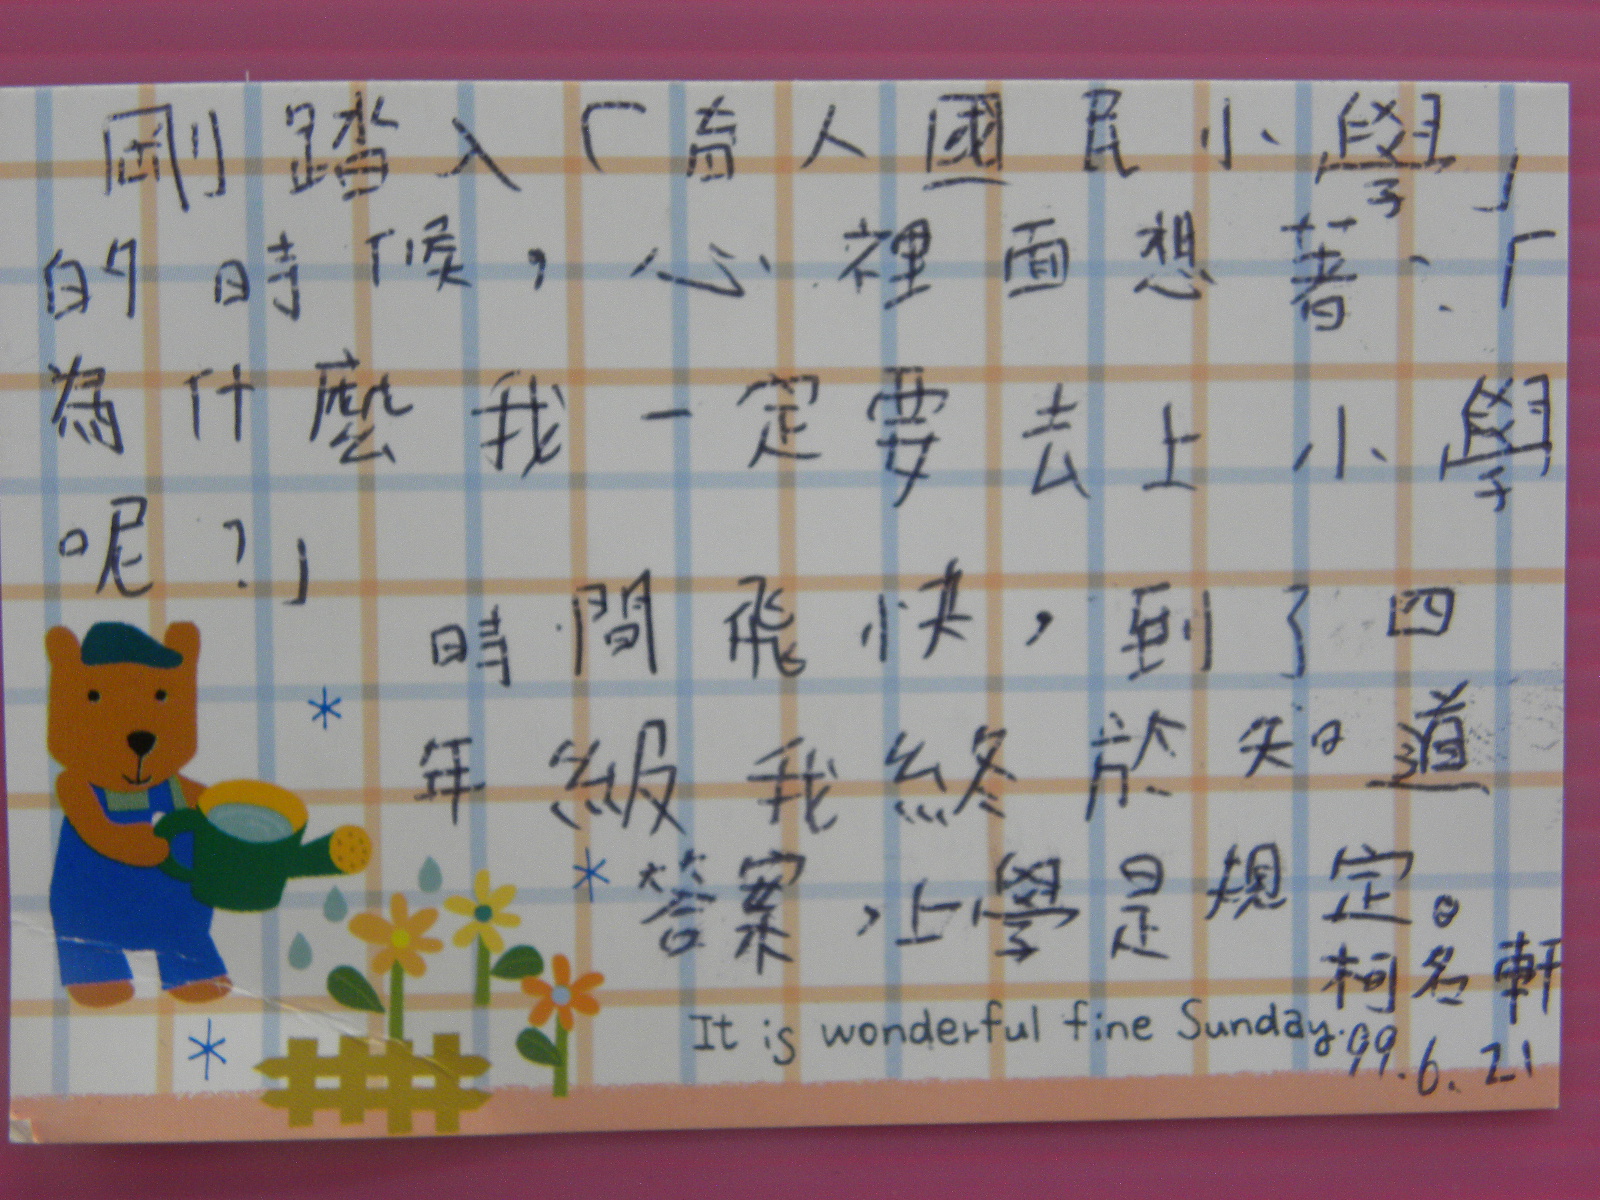 剛踏入「育人國民小學」
的時候，心裡面想著：「
為什麼我一定要去上小學
呢？」
時間飛快，到了四
年級我終於知道
答案，上學是規定。
柯名軒
It is wonderful fine Sunday.
99.6.21